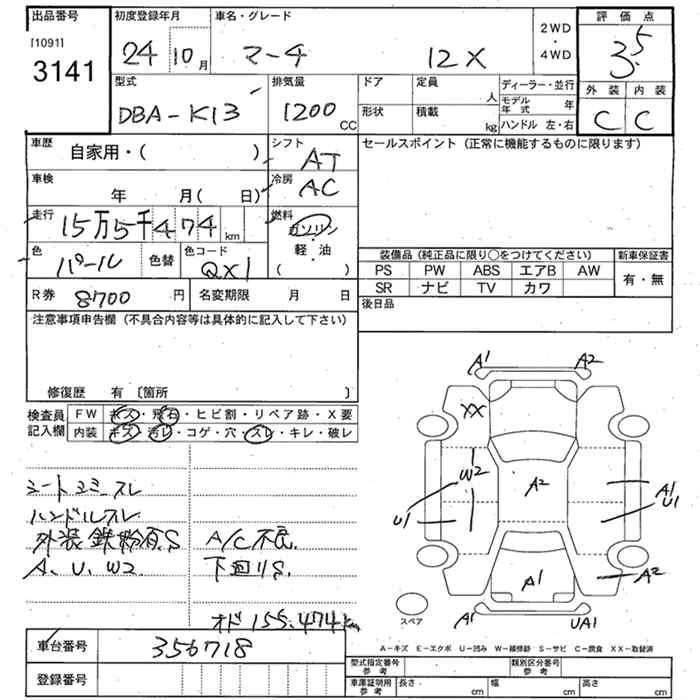 出品番号
[1091]
3141
初度登録年月
24 10月
車名・グレード
マーチ 12X
2WD
・
4WD
評価点
3.5
外装 内装
C C
型式
DBA-K13
排気量
1200 CC
ドア
形状
定員 人
積載 kg
ディーラー・並行
モデル年式 年
ハンドル 左・右
車歴
自家用・( )
シフト
AT
車検
年 月( 日)
冷房
AC
走行
15万5千474 km
燃料
ガソリン
・
軽油
( )
色
パール
色替
色コード
QX1
R券 8700 円
名変期限 月 日
セールスポイント (正常に機能するものに限ります)
装備品 (純正品に限り○をつけてください)
新車保証書
PS PW ABS エアB AW
SR ナビ TV カワ
有・無
後日品
注意事項申告欄 (不具合内容等は具体的に記入して下さい)
修復歴 有 〔箇所 〕
検査員記入欄
FW キズ・飛石・ヒビ割・リペア跡・X要
内装 キズ・汚レ・コゲ・穴・スレ・キレ・破レ
シートヨゴミ スレ
ハンドルスレ
外装 鉄粉有.S
A、U、W2
A/C不良.
下回りS.
オド 155.474km
A1 A2
XX
W2
A2
U1
A1
U1
A1
A2
A1
UA1
スペア
A-キズ E-エクボ U-凹み W-補修跡 S-サビ C-腐食 XX-取替済
車台番号 356718
登録番号
型式指定番号 参考
類別区分番号 参考
車庫証明用 参考
長さ cm
幅 cm
高さ cm